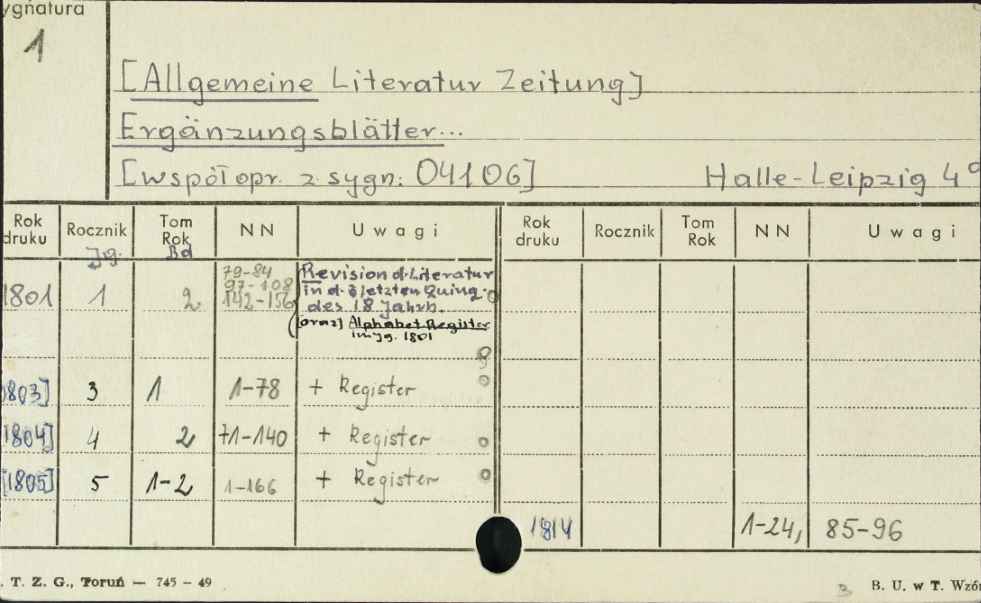 ygnatura
1
[Allgemeine Literatur Zeitung]
Ergänzungsblätter...
[współopr. z sygn: 04106] Halle-Leipzig 4°
Rok druku Rocznik Tom Rok NN Uwagi Rok druku Rocznik Tom Rok NN Uwagi
Jg. Bd
1801 1 2 79-84
97-108
142-156
Revision d. Literatur
in d. 3 letzten Quinq.
des 18 Jahrh.
(oraz) Alphabet Register
im Jg. 1801
1803] 3 1 1-78 + Register
[1804] 4 2 71-140 + Register
[1805] 5 1-2 1-166 + Register
1814 1-24, 85-96
. T. Z. G., Toruń — 745 - 49 3 B. U. w T. Wzó